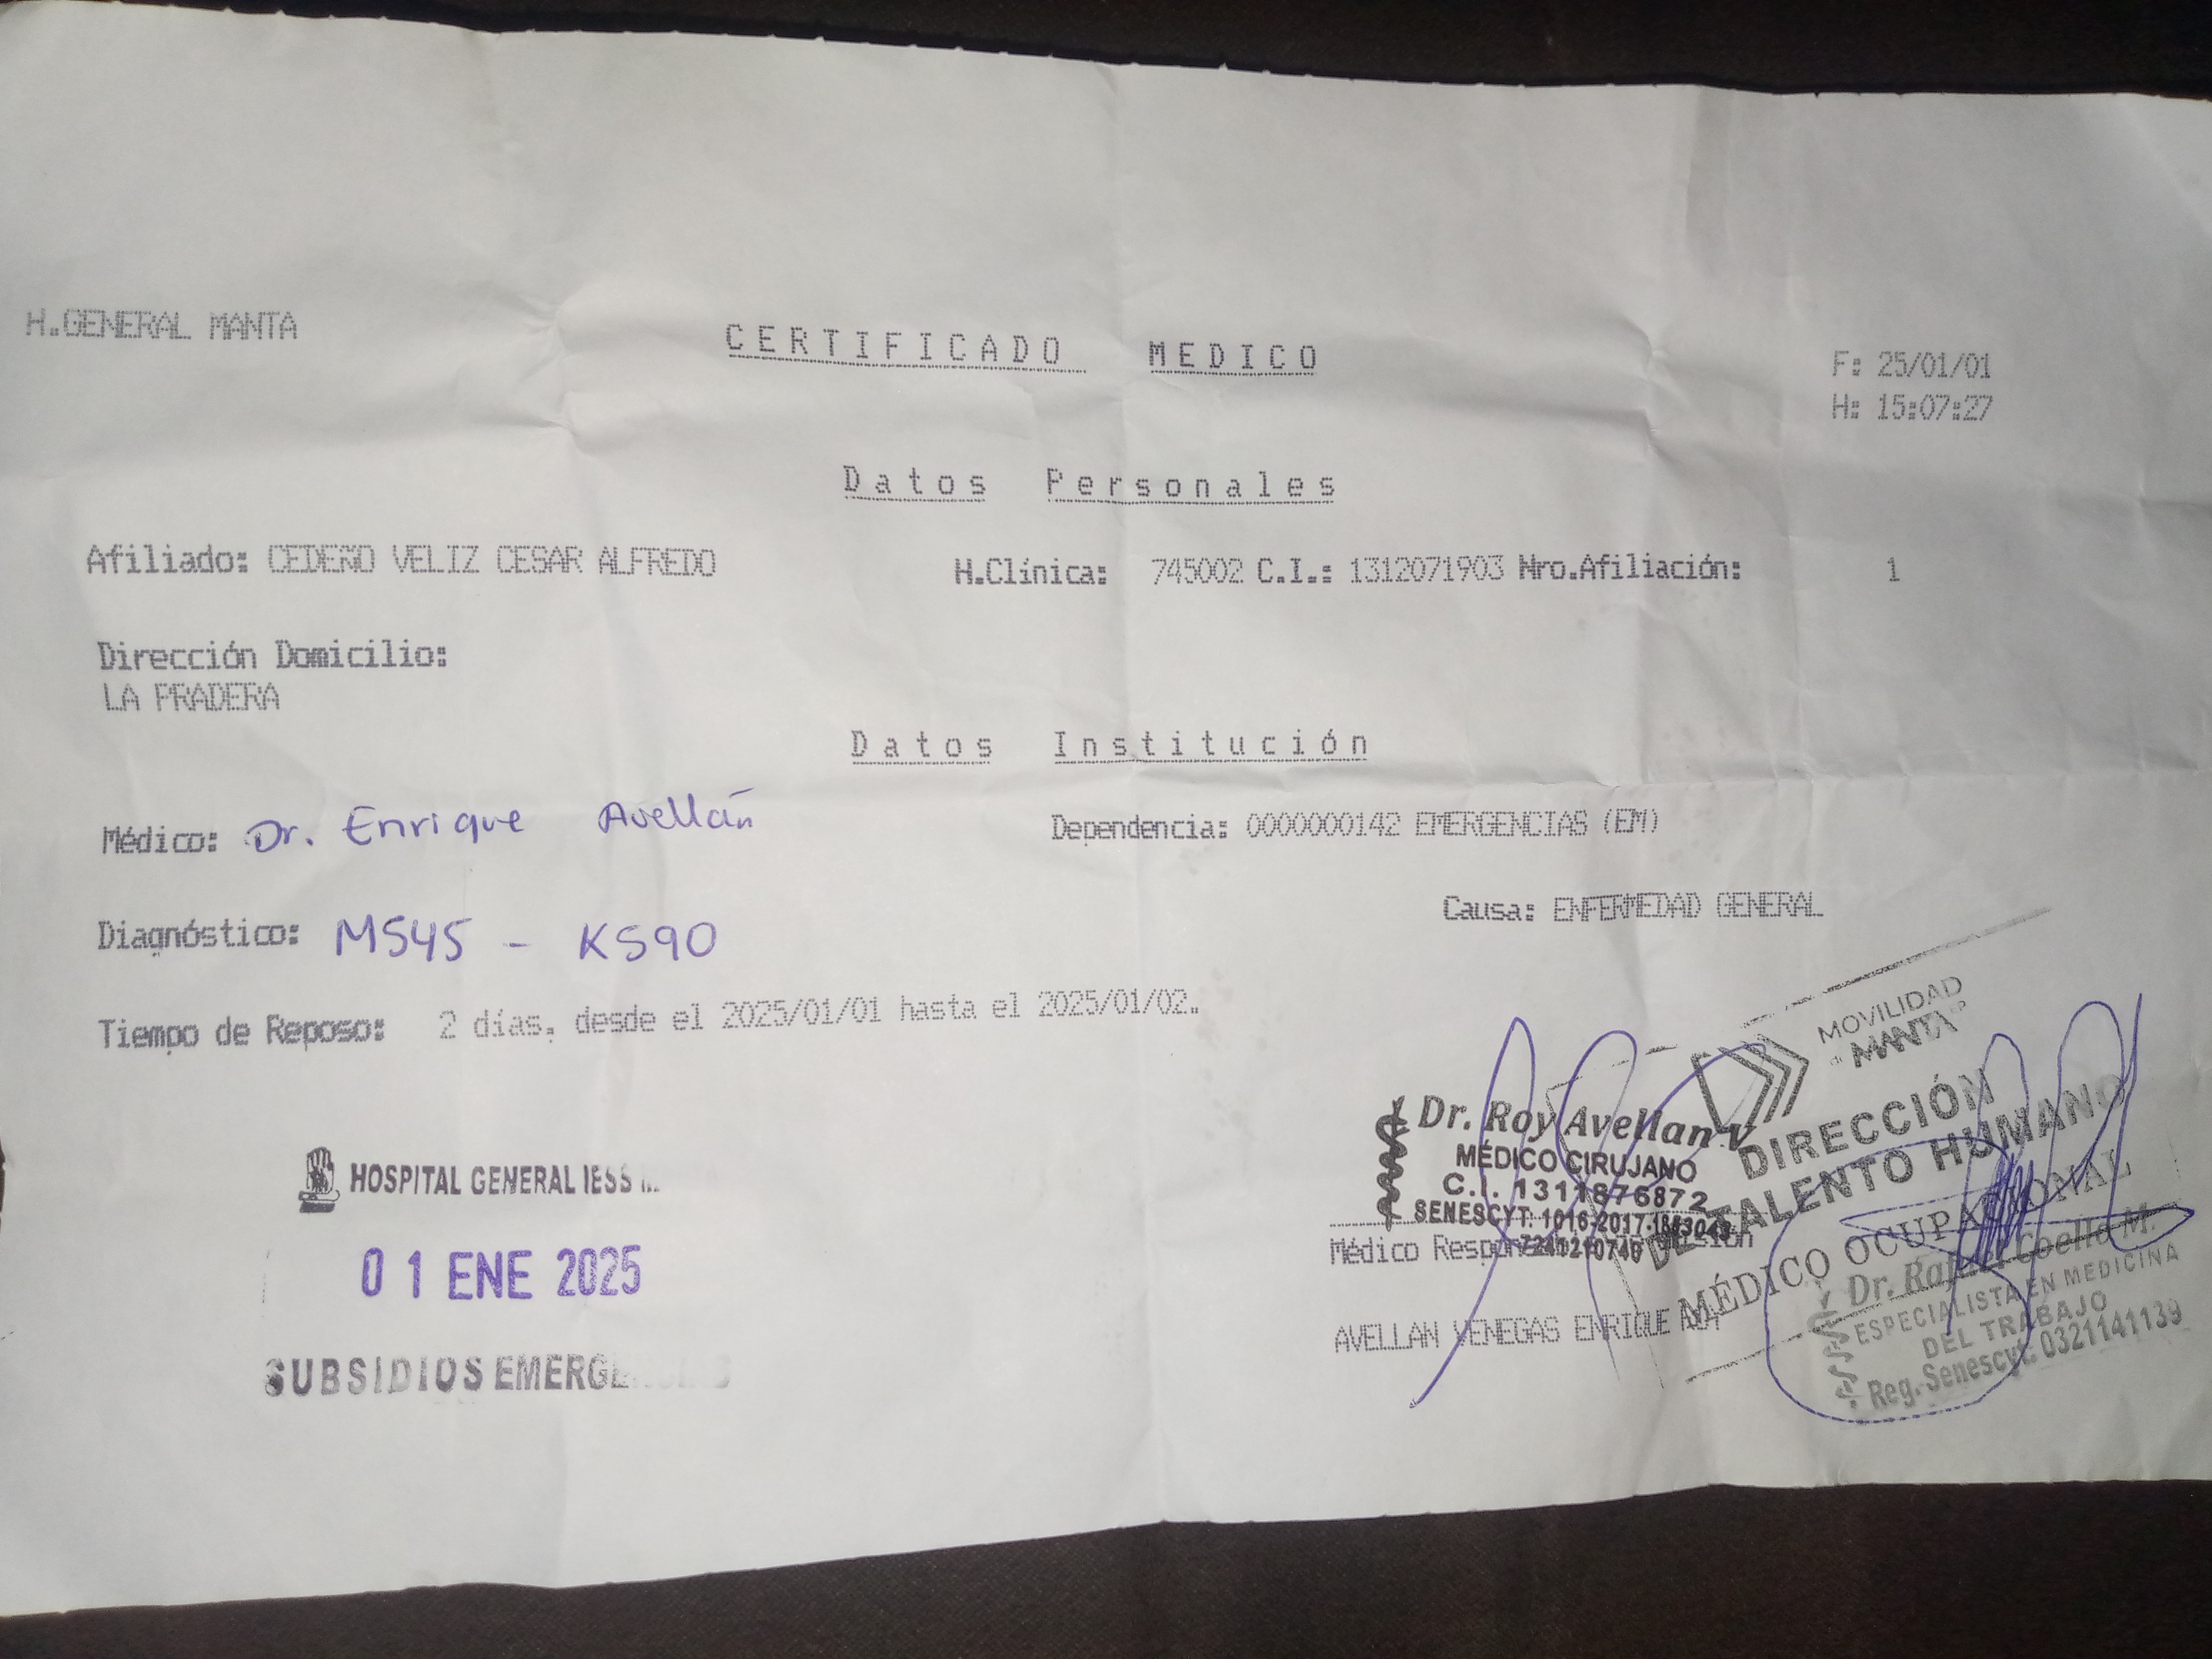 H.GENERAL MANTA
CERTIFICADO MEDICO
F: 25/01/01
H: 15:07:27
Datos Personales
Afiliado: CEDEÑO VELIZ CESAR ALFREDO H.Clínica: 745002 C.I.: 1312071903 Nro.Afiliación: 1
Dirección Domicilio:
LA PRADERA
Datos Institución
Médico: Dr. Enrique Avellán Dependencia: 0000000142 EMERGENCIAS (EM)
Causa: ENFERMEDAD GENERAL
Diagnóstico: M545 - K590
Tiempo de Reposo: 2 días, desde el 2025/01/01 hasta el 2025/01/02.
HOSPITAL GENERAL IESS
01 ENE 2025
SUBSIDIOS
Dr. Roy Avellan V
MÉDICO CIRUJANO
C.I. 1311876872
SENESCYT.
Médico
AVELLAN VENEGAS ENRIQUE
MOVILIDAD
MANTA
DIRECCIÓN
DE TALENTO HUMANO
MÉDICO OCUPACIONAL
Dr. Coello M.
ESPECIALISTA EN MEDICINA
DEL TRABAJO
Reg. Senescyt: 0321141139